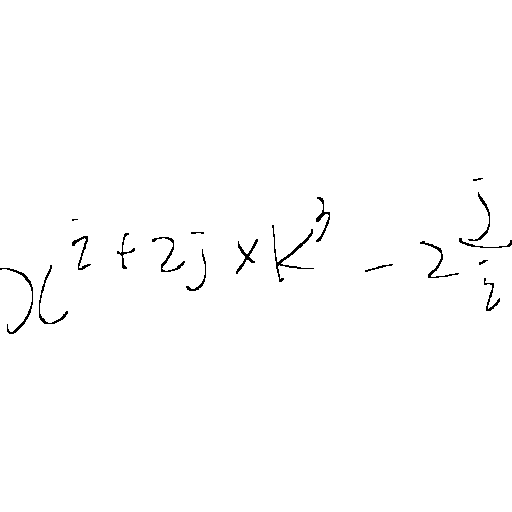 x^{i+2j} × k^3 - 2^{\frac{j}{i}}